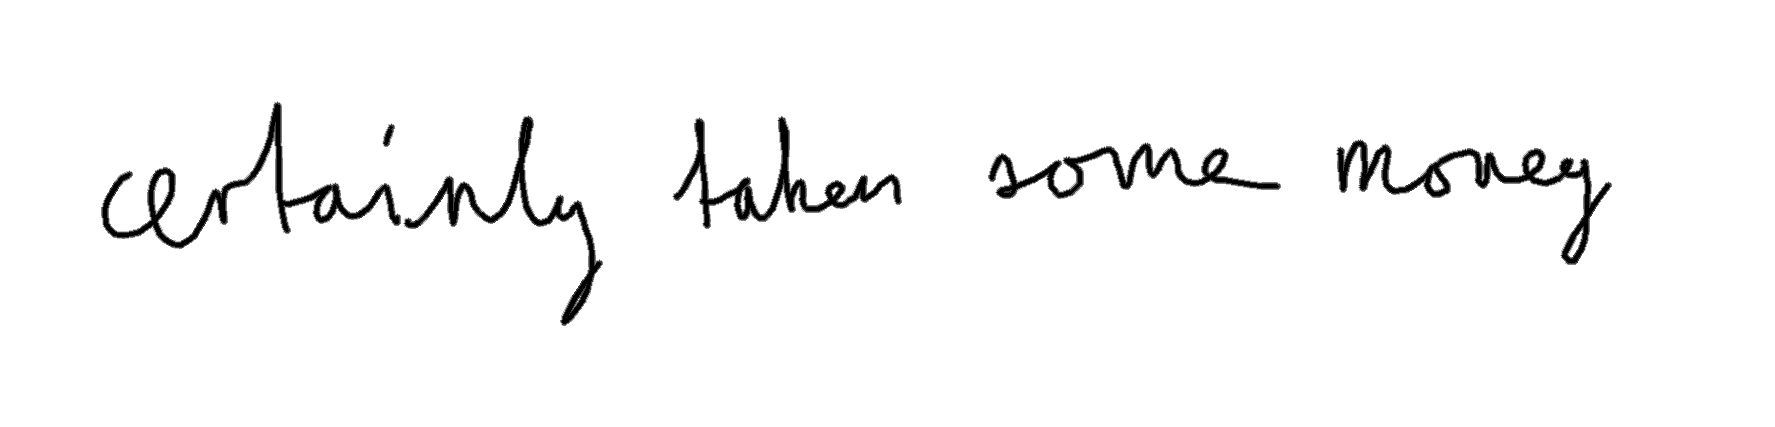 certainly taken some money